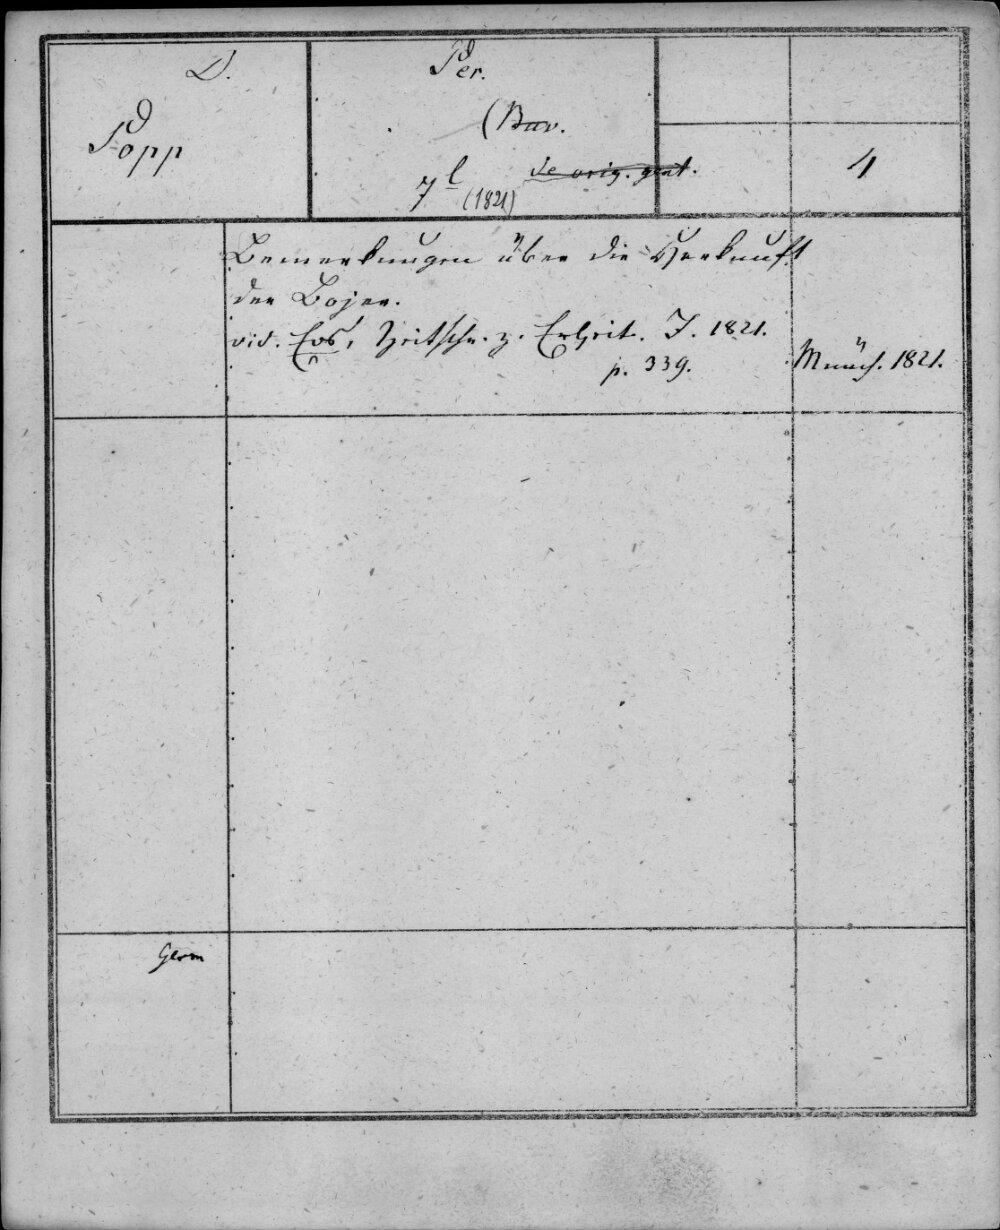 D.
Popp
Per.
(Bav.
de orig. gent.
7l (1821)
4
Bemerkungen über die Herkunft
der Bojer.
vid. Eos, Zeitschr. z. Erheit. J. 1821.
p. 339.
Münch. 1821.
Germ